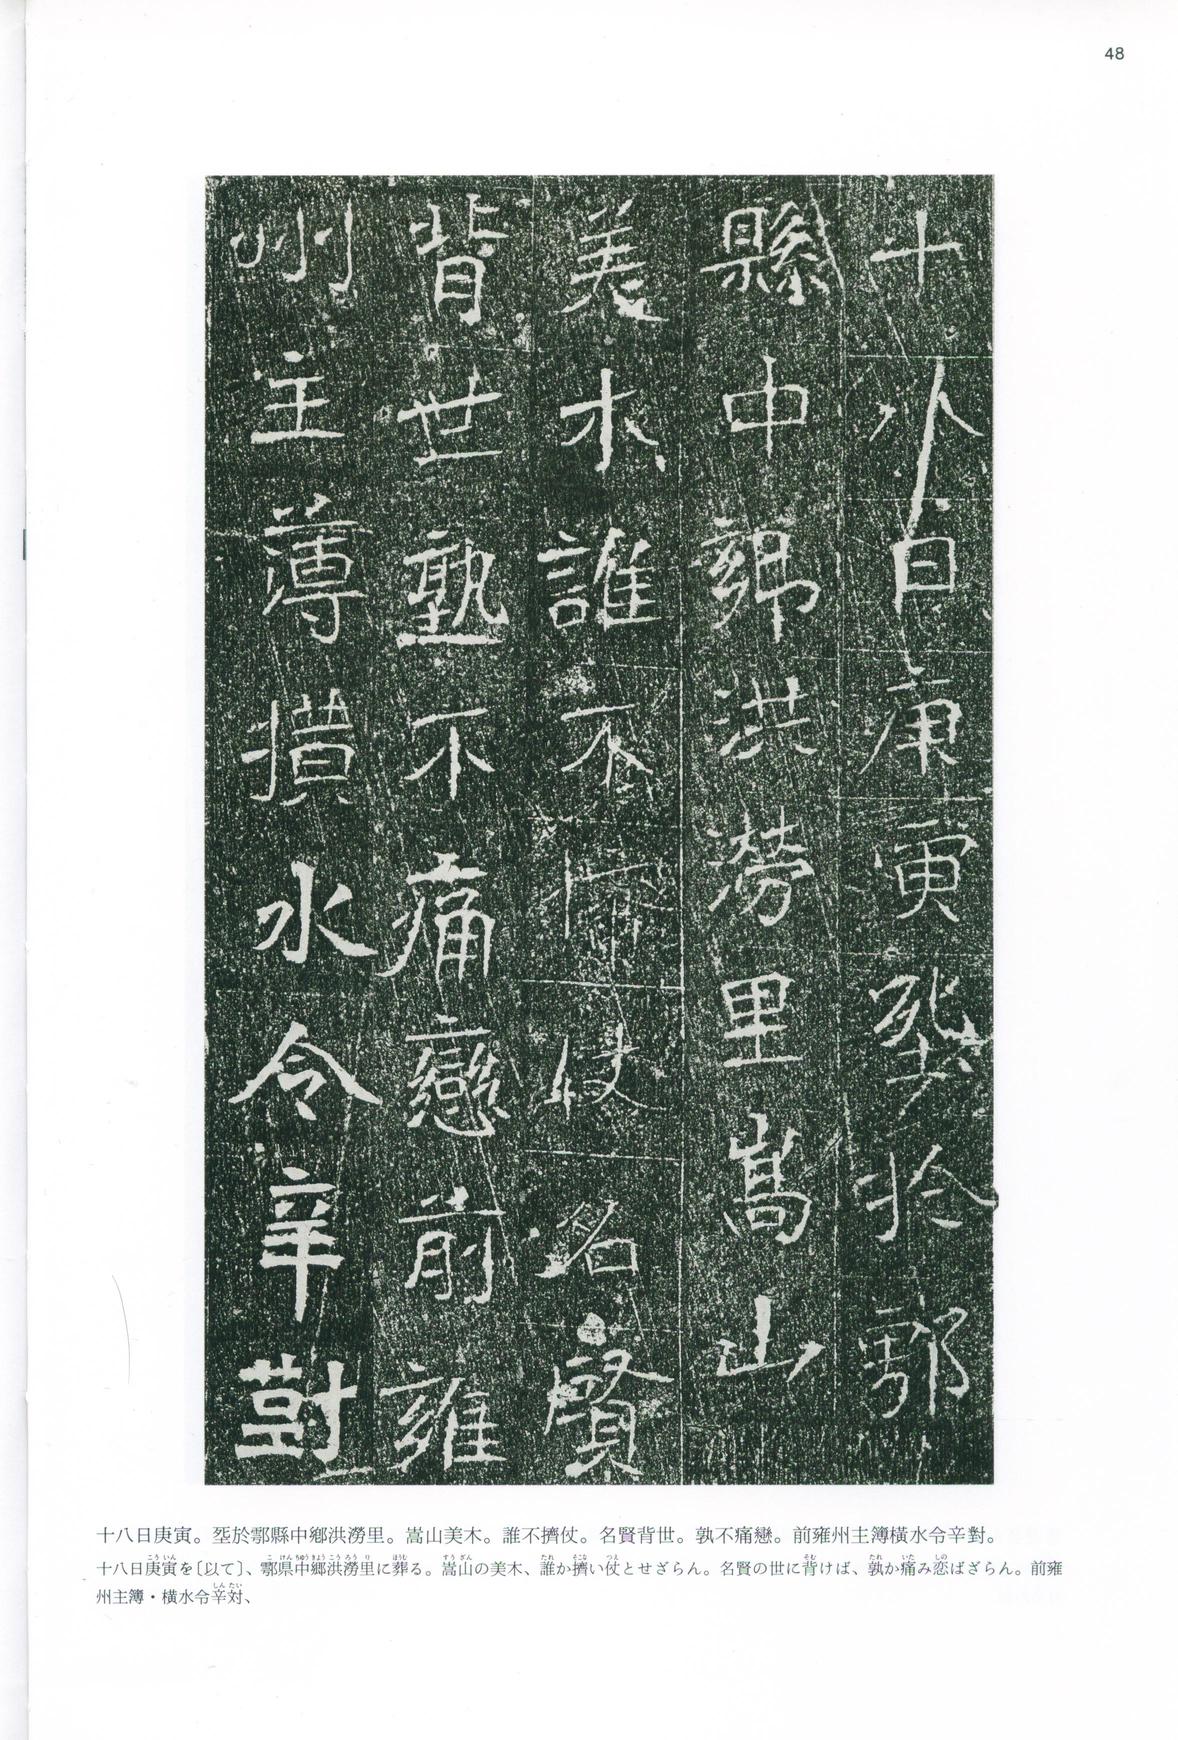 48
十八日庚寅葬於鄠
縣中鄉洪澇里嵩山
美木誰不擠仗名賢
背世孰不痛戀前雍
州主簿橫水令辛對
十八日庚寅。塟於鄠縣中鄉洪澇里。嵩山美木。誰不擠仗。名賢背世。孰不痛戀。前雍州主簿橫水令辛對。
十八日庚寅を〔以て〕、鄠県中郷洪澇里に葬る。嵩山の美木、誰か擠い仗とせざらん。名賢の世に背けば、孰か痛み恋ばざらん。前雍
州主簿・横水令辛対、